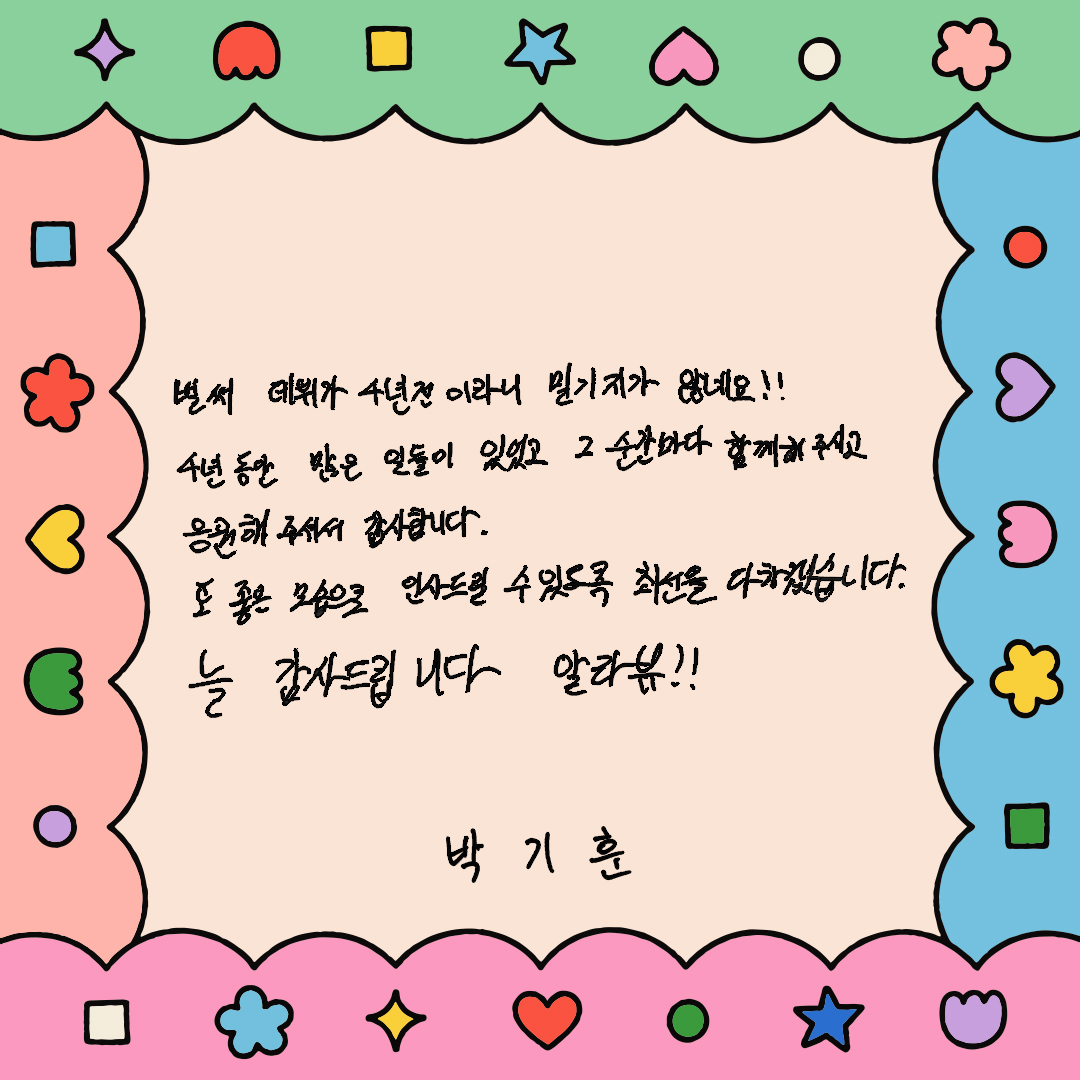 벌써 데뷔가 4년전 이라니 믿기지가 않네요!!
4년 동안 많은 일들이 있었고 그 순간마다 함께해 주시고
응원해 주셔서 감사합니다.
또 좋은 모습으로 인사드릴 수 있도록 최선을 다하겠습니다.
늘 감사드립니다 알라뷰!!
박기훈